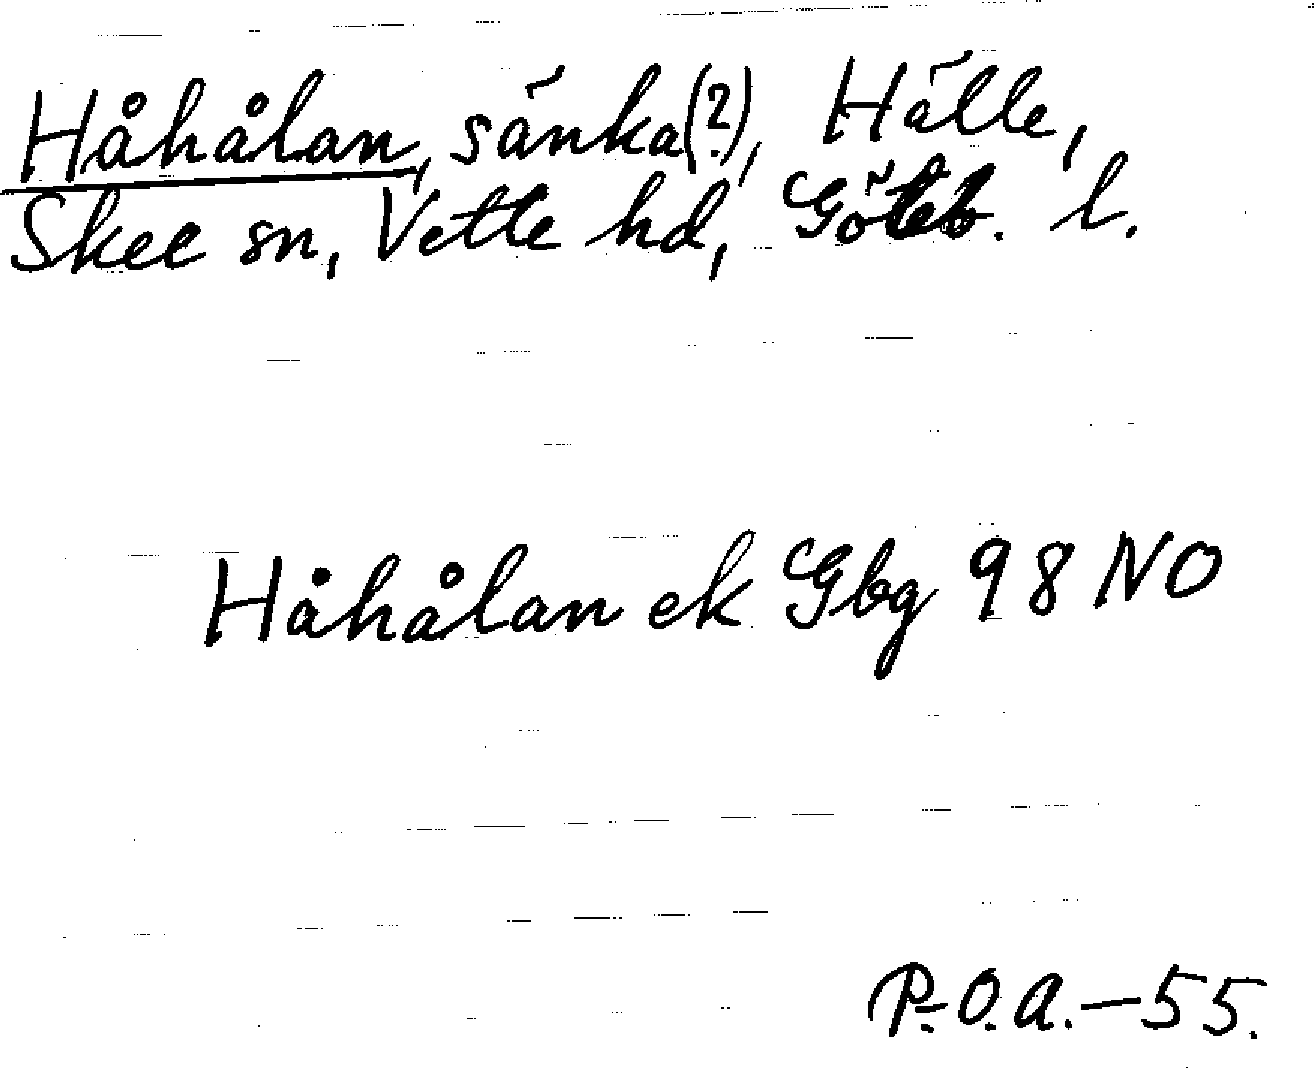 Håhålan, sänka(?), Hälle,
Skee sn, Vette hd, Göteb. l.
Håhålan ek Gbg 98 NO
P.-O.A.-55.